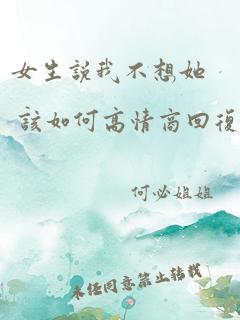 女生説我不想她
該如何高情商回復
何必姐姐
未经同意禁止转载